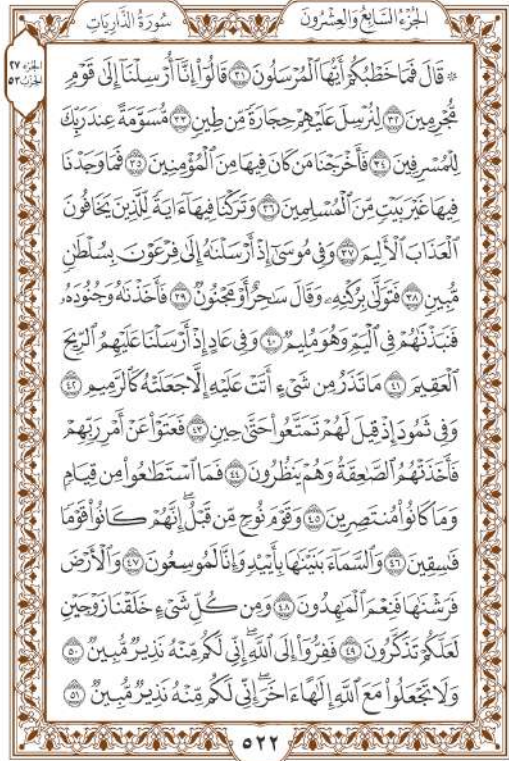 الجُزْءُ السَّابِعُ وَالعِشْرُونَ سُورَةُ الذَّارِيَاتِ
الجزء ٢٧
الحزب ٥٣
۞ قَالَ فَمَا خَطْبُكُمْ أَيُّهَا ٱلْمُرْسَلُونَ ٣١ قَالُوٓاْ إِنَّآ أُرْسِلْنَآ إِلَىٰ قَوْمٖ
مُّجْرِمِينَ ٣٢ لِنُرْسِلَ عَلَيْهِمْ حِجَارَةٗ مِّن طِينٖ ٣٣ مُّسَوَّمَةً عِندَ رَبِّكَ
لِلْمُسْرِفِينَ ٣٤ فَأَخْرَجْنَا مَن كَانَ فِيهَا مِنَ ٱلْمُؤْمِنِينَ ٣٥ فَمَا وَجَدْنَا
فِيهَا غَيْرَ بَيْتٖ مِّنَ ٱلْمُسْلِمِينَ ٣٦ وَتَرَكْنَا فِيهَآ ءَايَةٗ لِّلَّذِينَ يَخَافُونَ
ٱلْعَذَابَ ٱلْأَلِيمَ ٣٧ وَفِي مُوسَىٰٓ إِذْ أَرْسَلْنَٰهُ إِلَىٰ فِرْعَوْنَ بِسُلْطَٰنٖ
مُّبِينٖ ٣٨ فَتَوَلَّىٰ بِرُكْنِهِۦ وَقَالَ سَٰحِرٌ أَوْ مَجْنُونٞ ٣٩ فَأَخَذْنَٰهُ وَجُنُودَهُۥ
فَنَبَذْنَٰهُمْ فِي ٱلْيَمِّ وَهُوَ مُلِيمٞ ٤٠ وَفِي عَادٍ إِذْ أَرْسَلْنَا عَلَيْهِمُ ٱلرِّيحَ
ٱلْعَقِيمَ ٤١ مَا تَذَرُ مِن شَيْءٍ أَتَتْ عَلَيْهِ إِلَّا جَعَلَتْهُ كَٱلرَّمِيمِ ٤٢
وَفِي ثَمُودَ إِذْ قِيلَ لَهُمْ تَمَتَّعُواْ حَتَّىٰ حِينٖ ٤٣ فَعَتَوْاْ عَنْ أَمْرِ رَبِّهِمْ
فَأَخَذَتْهُمُ ٱلصَّٰعِقَةُ وَهُمْ يَنظُرُونَ ٤٤ فَمَا ٱسْتَطَٰعُواْ مِن قِيَامٖ
وَمَا كَانُواْ مُنتَصِرِينَ ٤٥ وَقَوْمَ نُوحٖ مِّن قَبْلُۖ إِنَّهُمْ كَانُواْ قَوْمٗا
فَٰسِقِينَ ٤٦ وَٱلسَّمَآءَ بَنَيْنَٰهَا بِأَيْيْدٖ وَإِنَّا لَمُوسِعُونَ ٤٧ وَٱلْأَرْضَ
فَرَشْنَٰهَا فَنِعْمَ ٱلْمَٰهِدُونَ ٤٨ وَمِن كُلِّ شَيْءٍ خَلَقْنَا زَوْجَيْنِ
لَعَلَّكُمْ تَذَكَّرُونَ ٤٩ فَفِرُّوٓاْ إِلَى ٱللَّهِۖ إِنِّي لَكُم مِّنْهُ نَذِيرٞ مُّبِينٞ ٥٠
وَلَا تَجْعَلُواْ مَعَ ٱللَّهِ إِلَٰهًا ءَاخَرَۖ إِنِّي لَكُم مِّنْهُ نَذِيرٞ مُّبِينٞ ٥١
٥٢٢